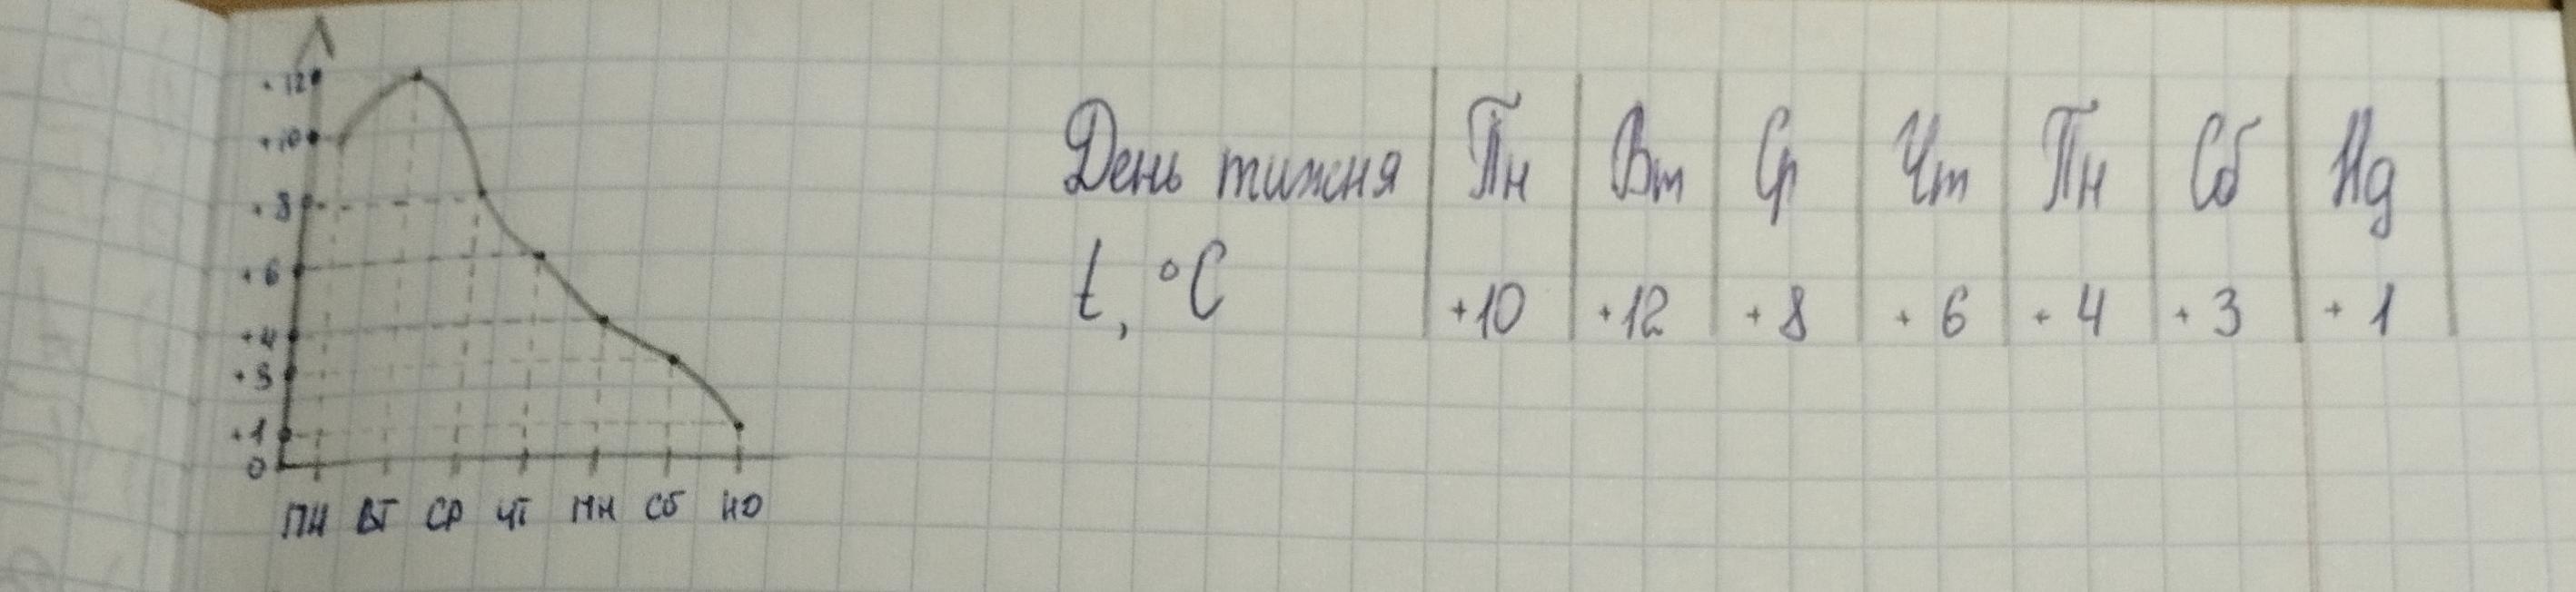 +12
+10
+8
+6
+4
+3
+1
0
ПН ВТ СР ЧТ ПН Сб НД
День тижня Пн Вт Ср Чт Пн Сб Нд
t, °C +10 +12 +8 +6 +4 +3 +1